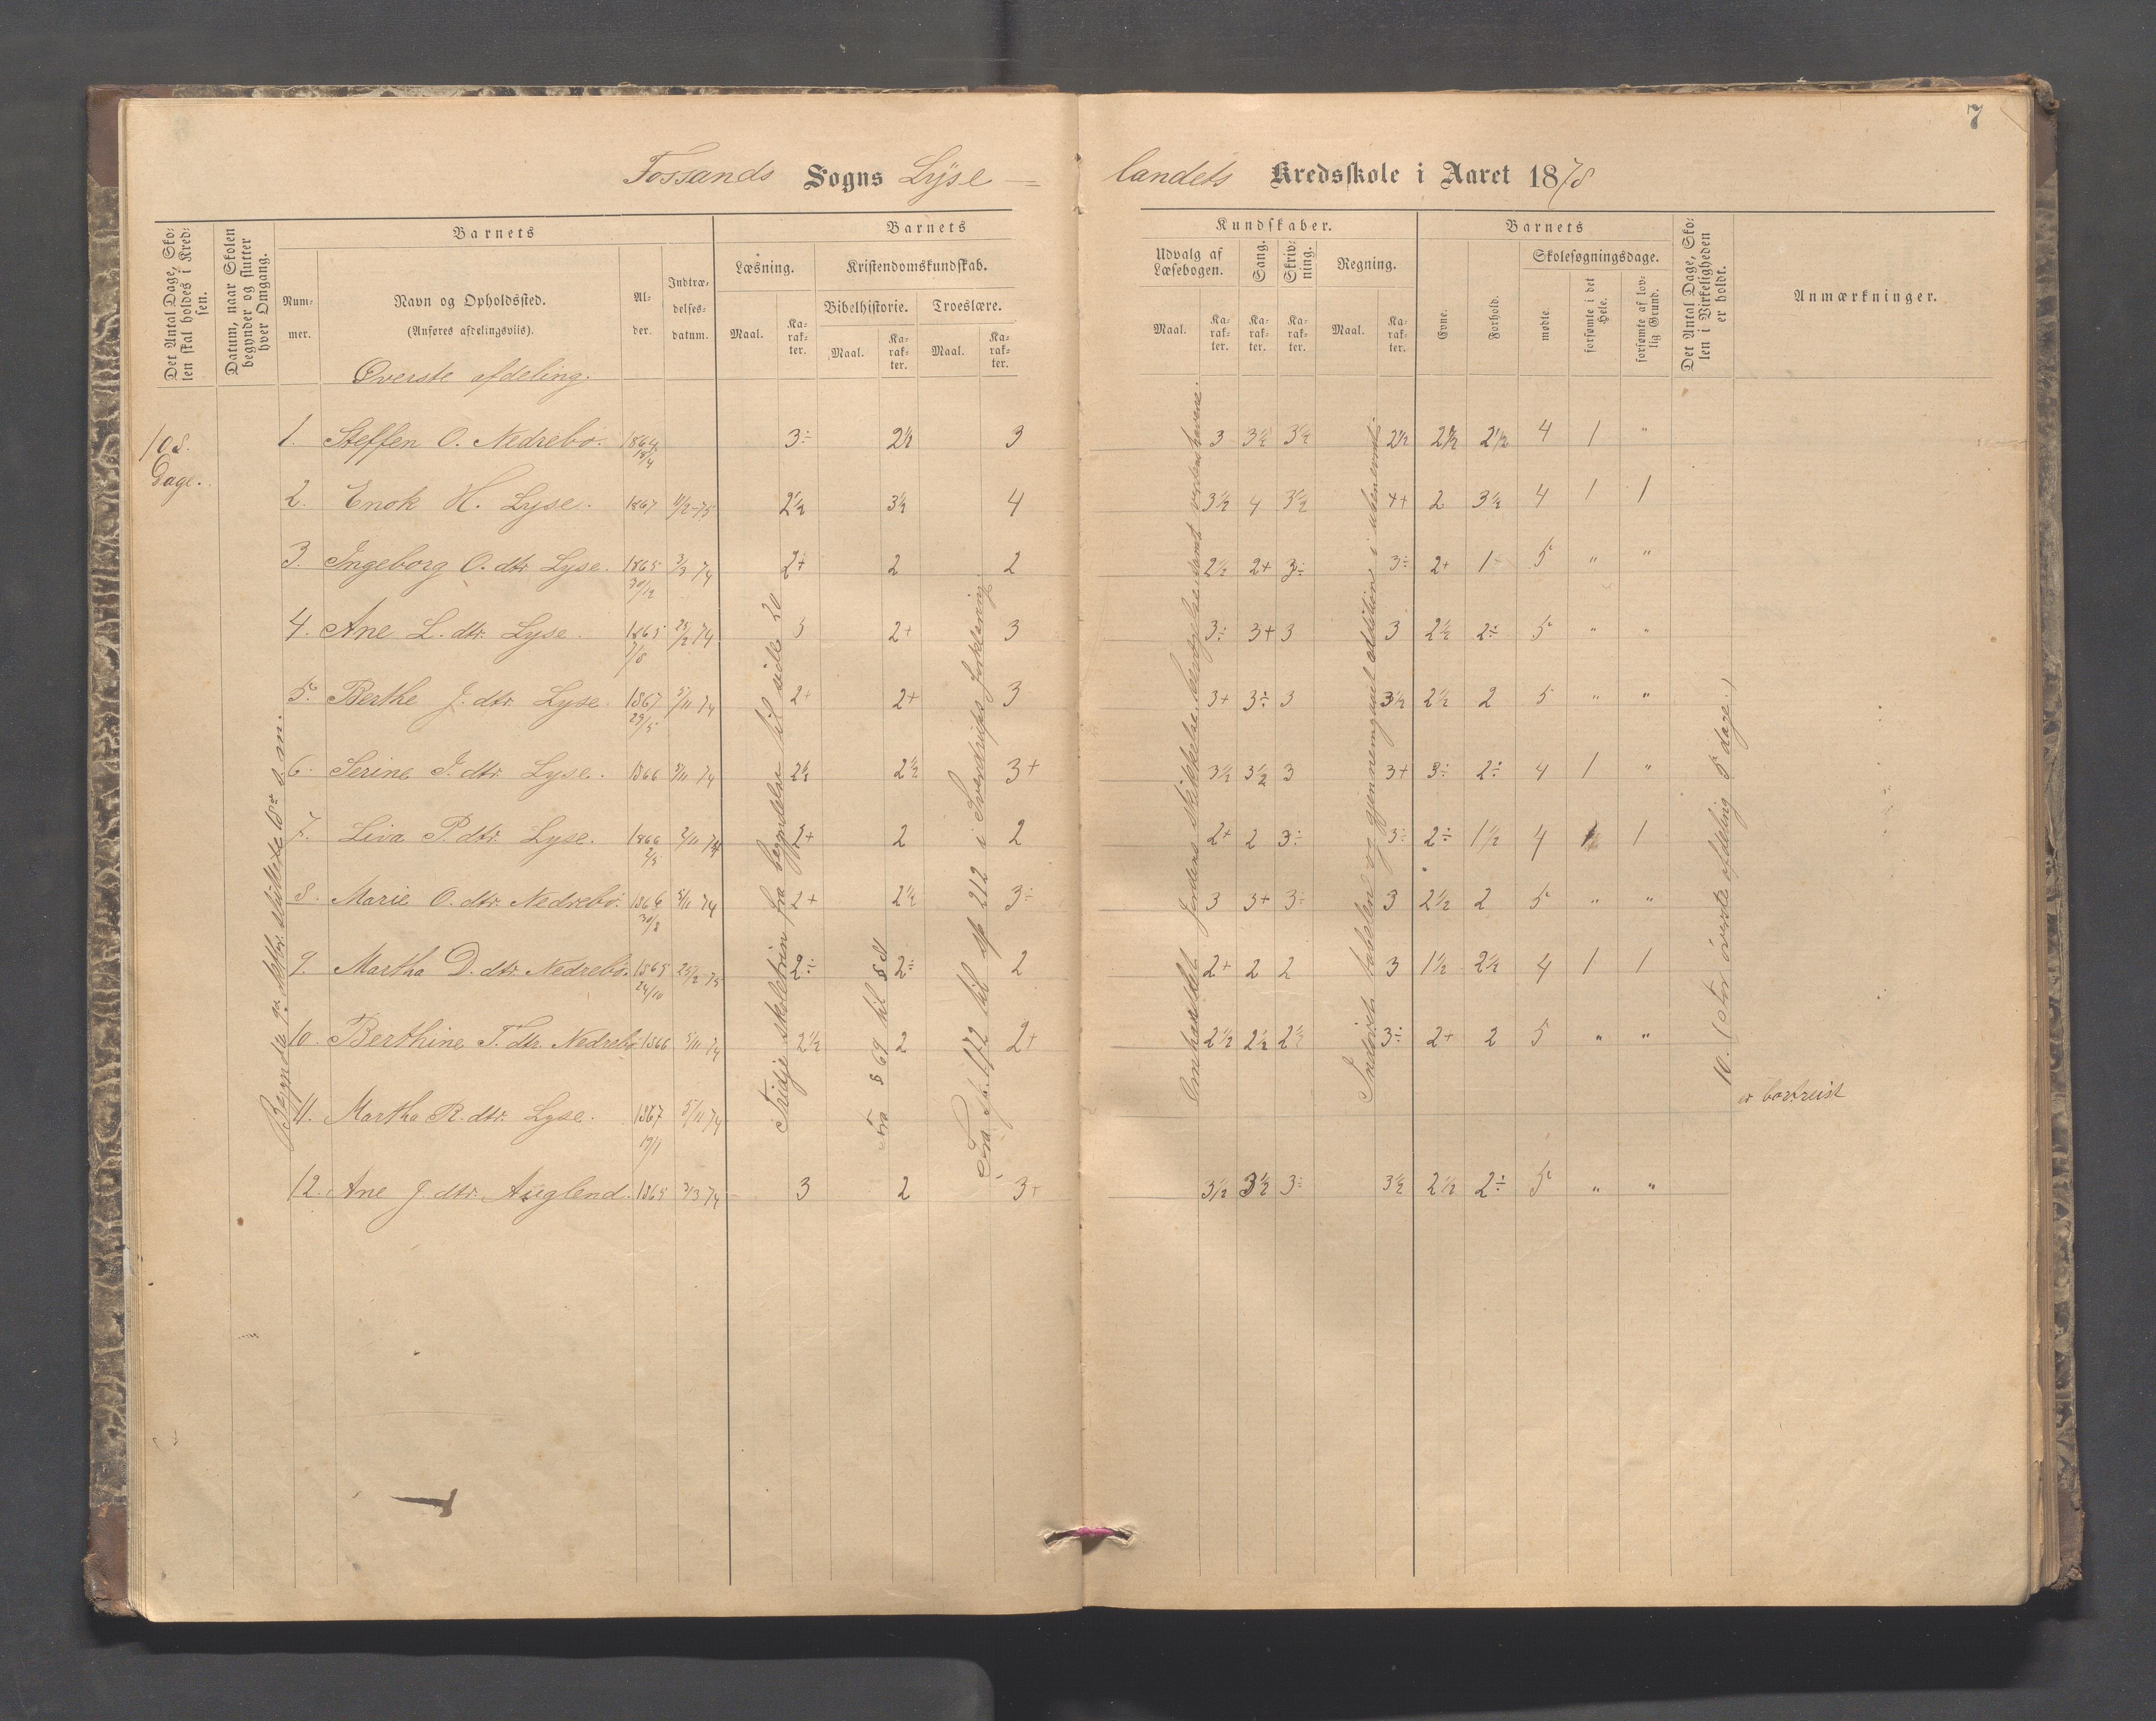 7
Fossands Sogns Lyse = landets Kredsskole i Aaret 1878
Det Antal Dage, Skolen skal holdes i Kredsen.
Datum, naar Skolen begynder og slutter hver Omgang.
Barnets
Nummer.
Navn og Opholdssted.
(Anføres afdelingsviis).
Alder.
Indtrædelsesdatum.
Barnets
Læsning.
Kristendomskundskab.
Bibelhistorie.
Troeslære.
Maal. Karakter. Maal. Karakter. Maal. Karakter.
Kundskaber.
Udvalg af Læsebogen.
Sang.
Skrivning.
Regning.
Maal. Karakter. Karakter. Karakter. Maal. Karakter.
Barnets
Evne.
Forhold.
Skolesøgningsdage.
mødte.
forsømte i det Hele.
forsømte af lovlig Grund.
Det Antal Dage, Skolen i Virkeligheden er holdt.
Anmærkninger.
Øverste afdeling.
108. Dage.
1. Steffen O. Nedrebø. 1864 18/4 3÷ 2½ 3 3 3½ 3½ 2½ 2½ 2½ 4 1 "
2. Enok H. Lyse. 1867 11/2-75 2½ 3½ 4 3½ 4 3½ 4+ 2 3½ 4 1 1
3. Ingeborg O. dtr. Lyse. 1865 30/12 3/3 74 2+ 2 2 2½ 2+ 3÷ 3÷ 2+ 1 5 " "
4. Ane L. dtr. Lyse. 1865 7/8 25/2 74 3 2+ 3 3÷ 3+ 3 3 2½ 2÷ 5 " "
5. Berthe J. dtr. Lyse. 1867 29/5 5/11 74 2+ 2+ 3 3+ 3÷ 3 3½ 2½ 2 5 " "
6. Serine J. dtr. Lyse. 1866 5/11 74 2½ 2½ 3+ 3½ 3½ 3 3+ 3÷ 2÷ 4 1 "
7. Liva P. dtr. Lyse. 1866 2/5 2/11 74 2+ 2 2 2+ 2 3÷ 3÷ 2÷ 1½ 4 1 1
8. Marie O. dtr. Nedrebø. 1866 30/8 5/11 74 2+ 2½ 3÷ 3 3+ 3÷ 3 2½ 2 5 " "
9. Martha D. dtr. Nedrebø. 1865 24/10 25/2 75 2÷ 2÷ 2 2+ 2 2 3 1½ 2½ 4 1 1
10. Berthine T. dtr. Nedrebø 1866 5/11 74 2½ 2 2+ 2½ 2½ 2½ 3÷ 2+ 2 5 " "
11. Martha R. dtr. Lyse. 1867 19/11 5/11 74 er bortreist
12. Ane J. dtr. Auglend. 1865 3/3 74 3 2 3+ 3½ 3½ 3÷ 3½ 2½ 2÷ 5 " "
Tridje skoletrin fra begyndelsen til side 20
Fra § 69 til §
Fra sp. 172 til sp 212 i Sverdrups forklaring.
Omhandlet Jordens skikkelse, samt verdenshavene.
Indøvet tabellen og gjennemgaaet addition i ubenævnte
10. (For øverste afdeling 5 dage.)